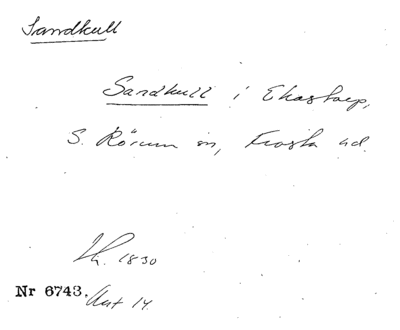 Sandkull
Sandkull i Ekastorp,
S. Rörum sn, Frosta hd.
1830
Nr 6743. Akt 14.